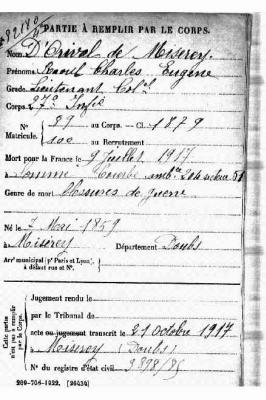 PARTIE À REMPLIR PAR LE CORPS.
Nom D'Orival de Miserey
Prénoms Raoul Charles Eugène
Grade Lieutenant Col^el
Corps 27e Inf^ie
N° 89 au Corps. — Cl. 1879
Matricule. 100 au Recrutement
Mort pour la France le 9 juillet 1917
à Somme
Genre de mort Blessures de guerre
Né le 7 Mai 1859
à Miserey Département Doubs
Arr^t municipal (p^r Paris et Lyon),
à défaut rue et N°.
Cette partie
n'est pas à remplir
par le Corps.
Jugement rendu le
par le Tribunal de
acte ou jugement transcrit le 21 octobre 1917
à Miserey (Doubs)
N° du registre d'état civil